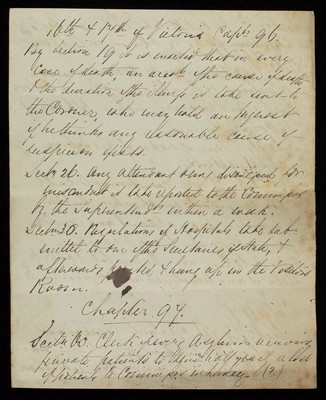 16th & 17th of Victoria Capt. 96.
By section 19 it is enacted that in every
case of death, an acct. of the cause of death
& the duration of the illness is to be sent to
the Coroner, who may hold an Inquest
if he thinks any reasonable cause of
suspicion exists.
Sectn 20. Any attendant being dismissed for
misconduct is to be reported to the Commrs
by the Superintendt within a week.
Sectn 30. Regulations of Hospitals to be sub
mitted to one of the Secretaries of State, &
afterwards printed, & hung up in the Visitors
Room.
Chapter 97.
Sectn 60. Clerk of every Asylum receiving
private patients to send half yearly a list
of patients to Commrs in Lunacy. (2.)